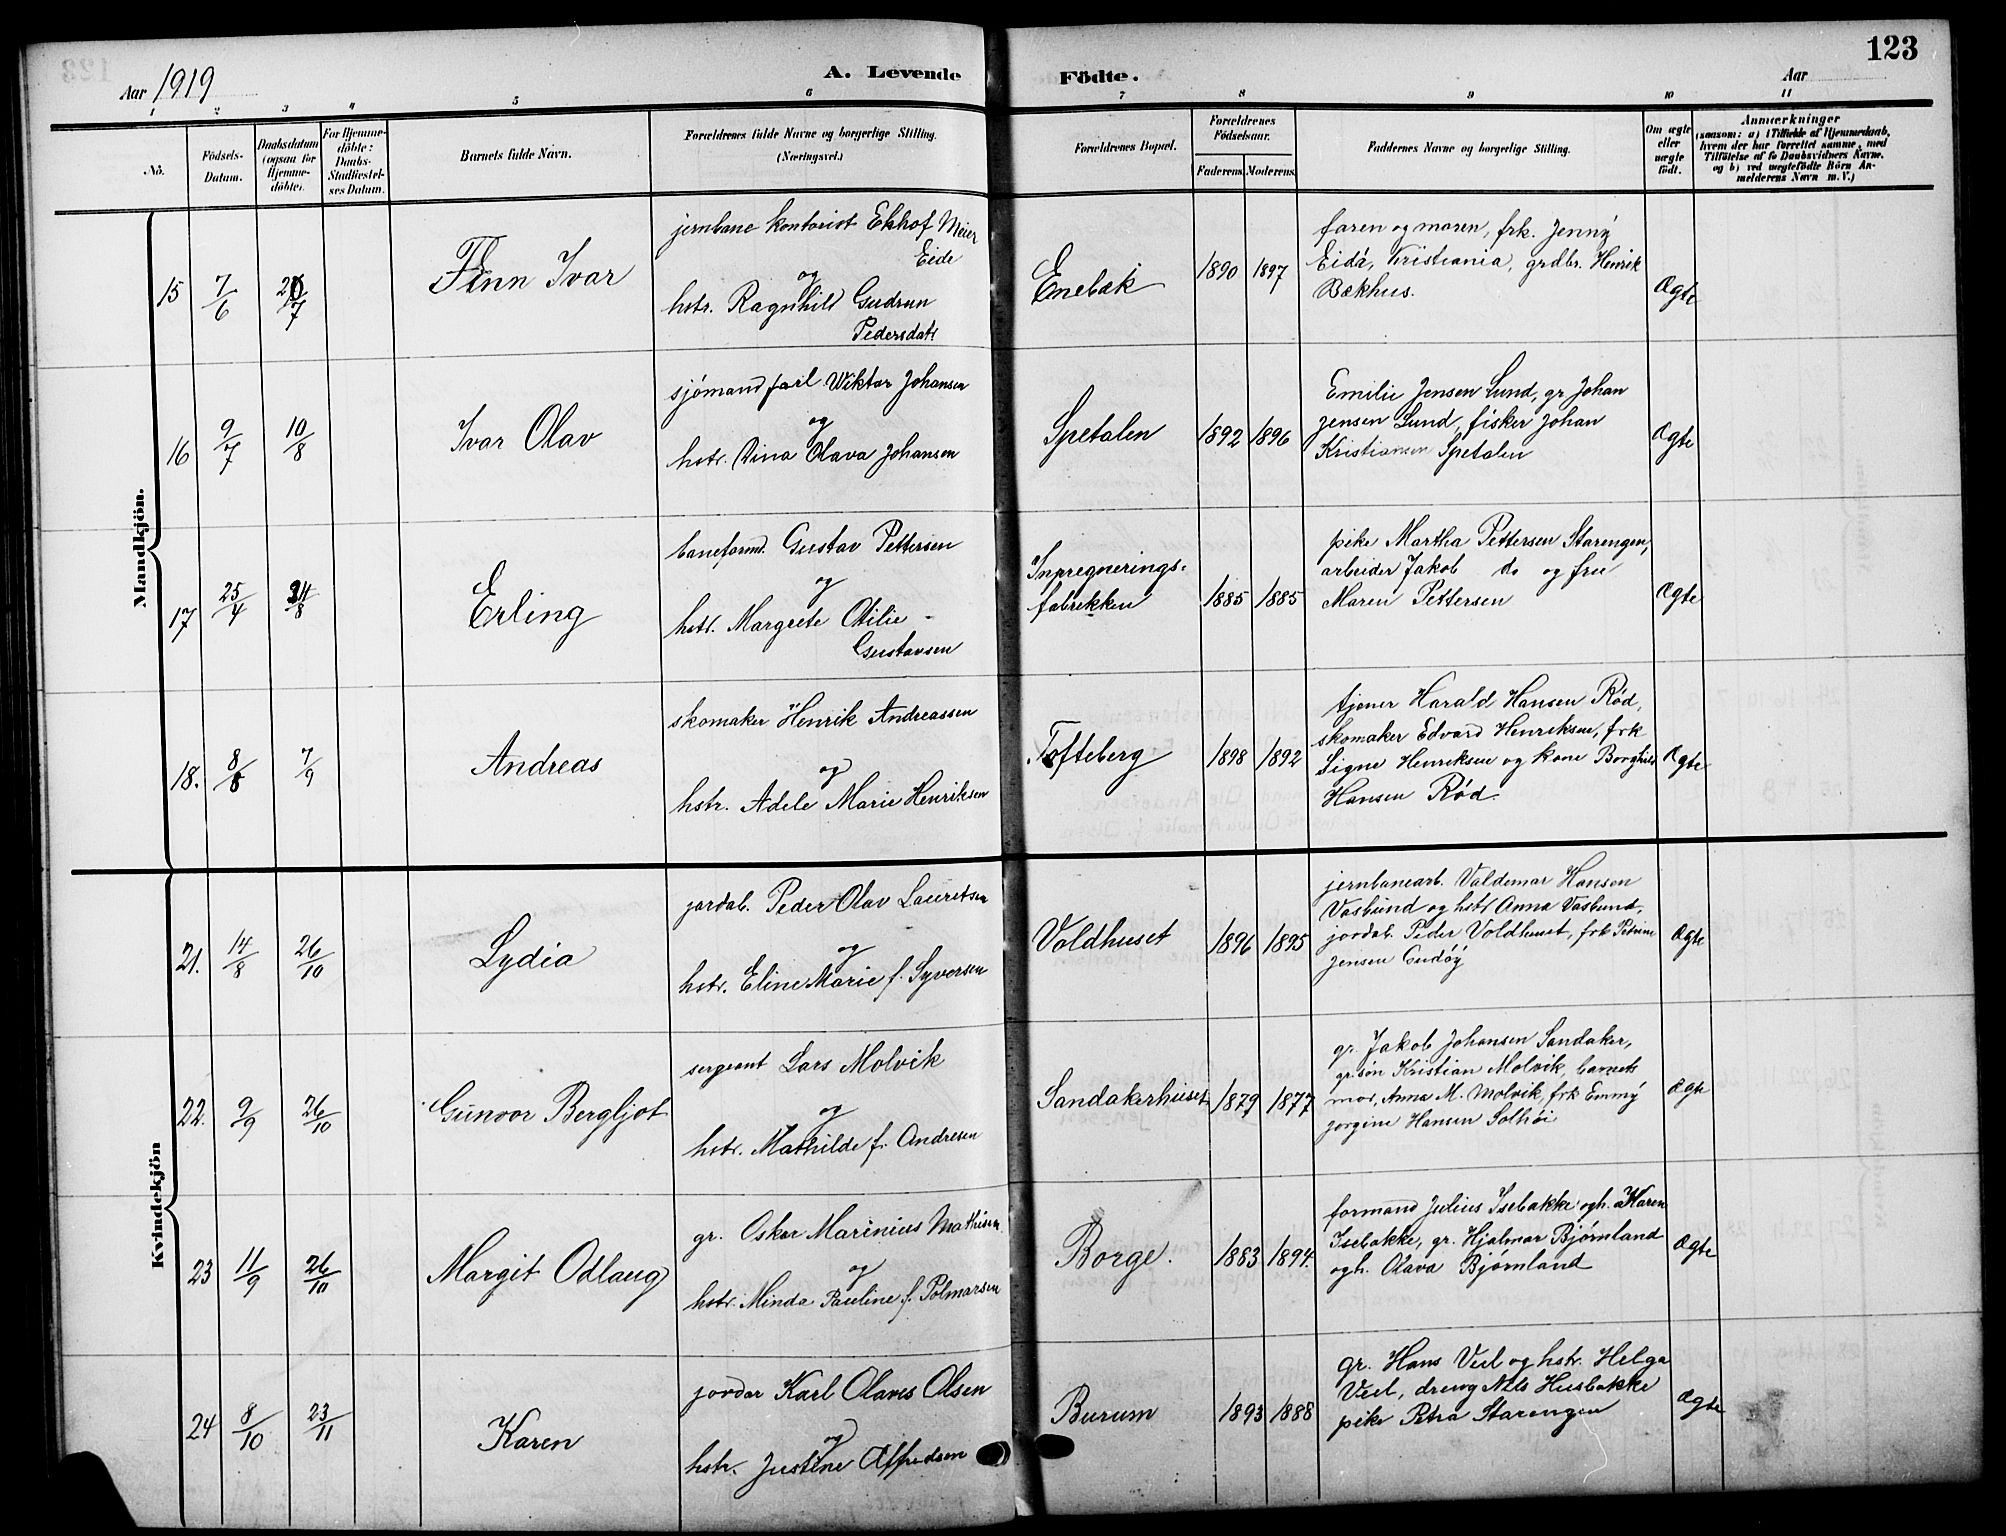 123
Aar 1919
A. Levende Födte.
Aar
1 2 3 4 5 6 7 8 9 10 11
No.
Födsels-
Datum.
Daabsdatum
(ogsaa for
Hjemme-
döbte).
For Hjemme-
döbte:
Daabs-
Stadfæstel-
ses Datum.
Barnets fulde Navn.
Forældrenes fulde Navne og borgerlige Stilling.
(Næringsvei.)
Forældrenes Bopæl.
Forældrenes
Födselsaar.
Faderens. Moderens.
Faddernes Navne og borgerlige Stilling.
Om ægte
eller
uægte
födt.
Anmærkninger
(saasom: a) i Tilfælde af Hjemmedaab,
hvem der har forrettet samme, med
Tilföielse af to Daabsvidners Navne.
og b) ved uægtefödte Börn An-
melderens Navn m. V.)
Mandkjön.
15 7/6 20/7 Finn Ivar
jernbane kontorist Ekhof Meier
Eide
og
hstr. Ragnhild Gudrun
Pedersdatr
Enebak 1890 1897
faren og moren, frk. Jenny
Eidá, Kristiania, grdbr. Henrik
Bækhus.
Ægte
16 9/7 10/8 Ivar Olav
sjömand Jarl Wiktor Johansen
og
hstr. Dina Olava Johansen
Spetalen 1892 1896
Emilie Jensen Lund, gr. Johan
Jensen Lund, fisker Johan
Kristiansen Spetalen
Ægte
17 25/4 24/8 Erling
baneformd. Gustav Pettersen
og
hstr. Margrete Otilie
Gustavsen
Inpregnerings-
fabrikken 1885 1885
pike Martha Pettersen Starengen,
arbeider Jakob do og fru
Maren Pettersen
Ægte
18. 8/8 7/9 Andreas
skomaker Henrik Andreassen
og
hstr. Adele Marie Henriksen
Tofteberg 1898 1892
tjener Harald Hansen Rød,
skomaker Edvard Henriksen, frk
Signe Henriksen og kone Borghild
Hansen Rød.
Ægte
Kvindekjön
21. 14/8 26/10 Lydia
jordab. Peder Olav Lauritsen
og
hstr. Eline Marie f. Syversen
Voldhuset 1896 1895
jernbanearb. Valdemar Hansen
Vasbund og hstr Anna Vasbund,
jordab. Peder Voldhuset, frk Petrine
Jensen Gudøy
Ægte
22. 9/9 26/10 Gunvor Bergljot
sergeant Lars Molvik
og
hstr. Mathilde f. Andresen
Sandakerhuset 1879 1877
gr. Jakob Johansen Sandaker,
gr.søn Kristian Molvik, barnets
mor, Anna M. Molvik, frk Emmy
Jorgine Hansen Solhöi
Ægte
23 11/9 26/10 Margit Odlaug
gr. Oskar Marinius Mathisen
og
hstr. Minda Pauline f. Polmarsen
Borge. 1883 1894.
formand Julius Isebakke og h. Karen
Isebakke, gr. Hjalmar Bjørnland
og h. Olava Bjørnland
Ægte
24 8/10 23/11 Karen
jordar Karl Olaves Olsen
og
hstr. Justine Alfredsen
Burum 1893 1888
gr. Hans Veel og hstr. Helga
Veel, dreng Nils Husbakke
pike Petra Starengen
Ægte